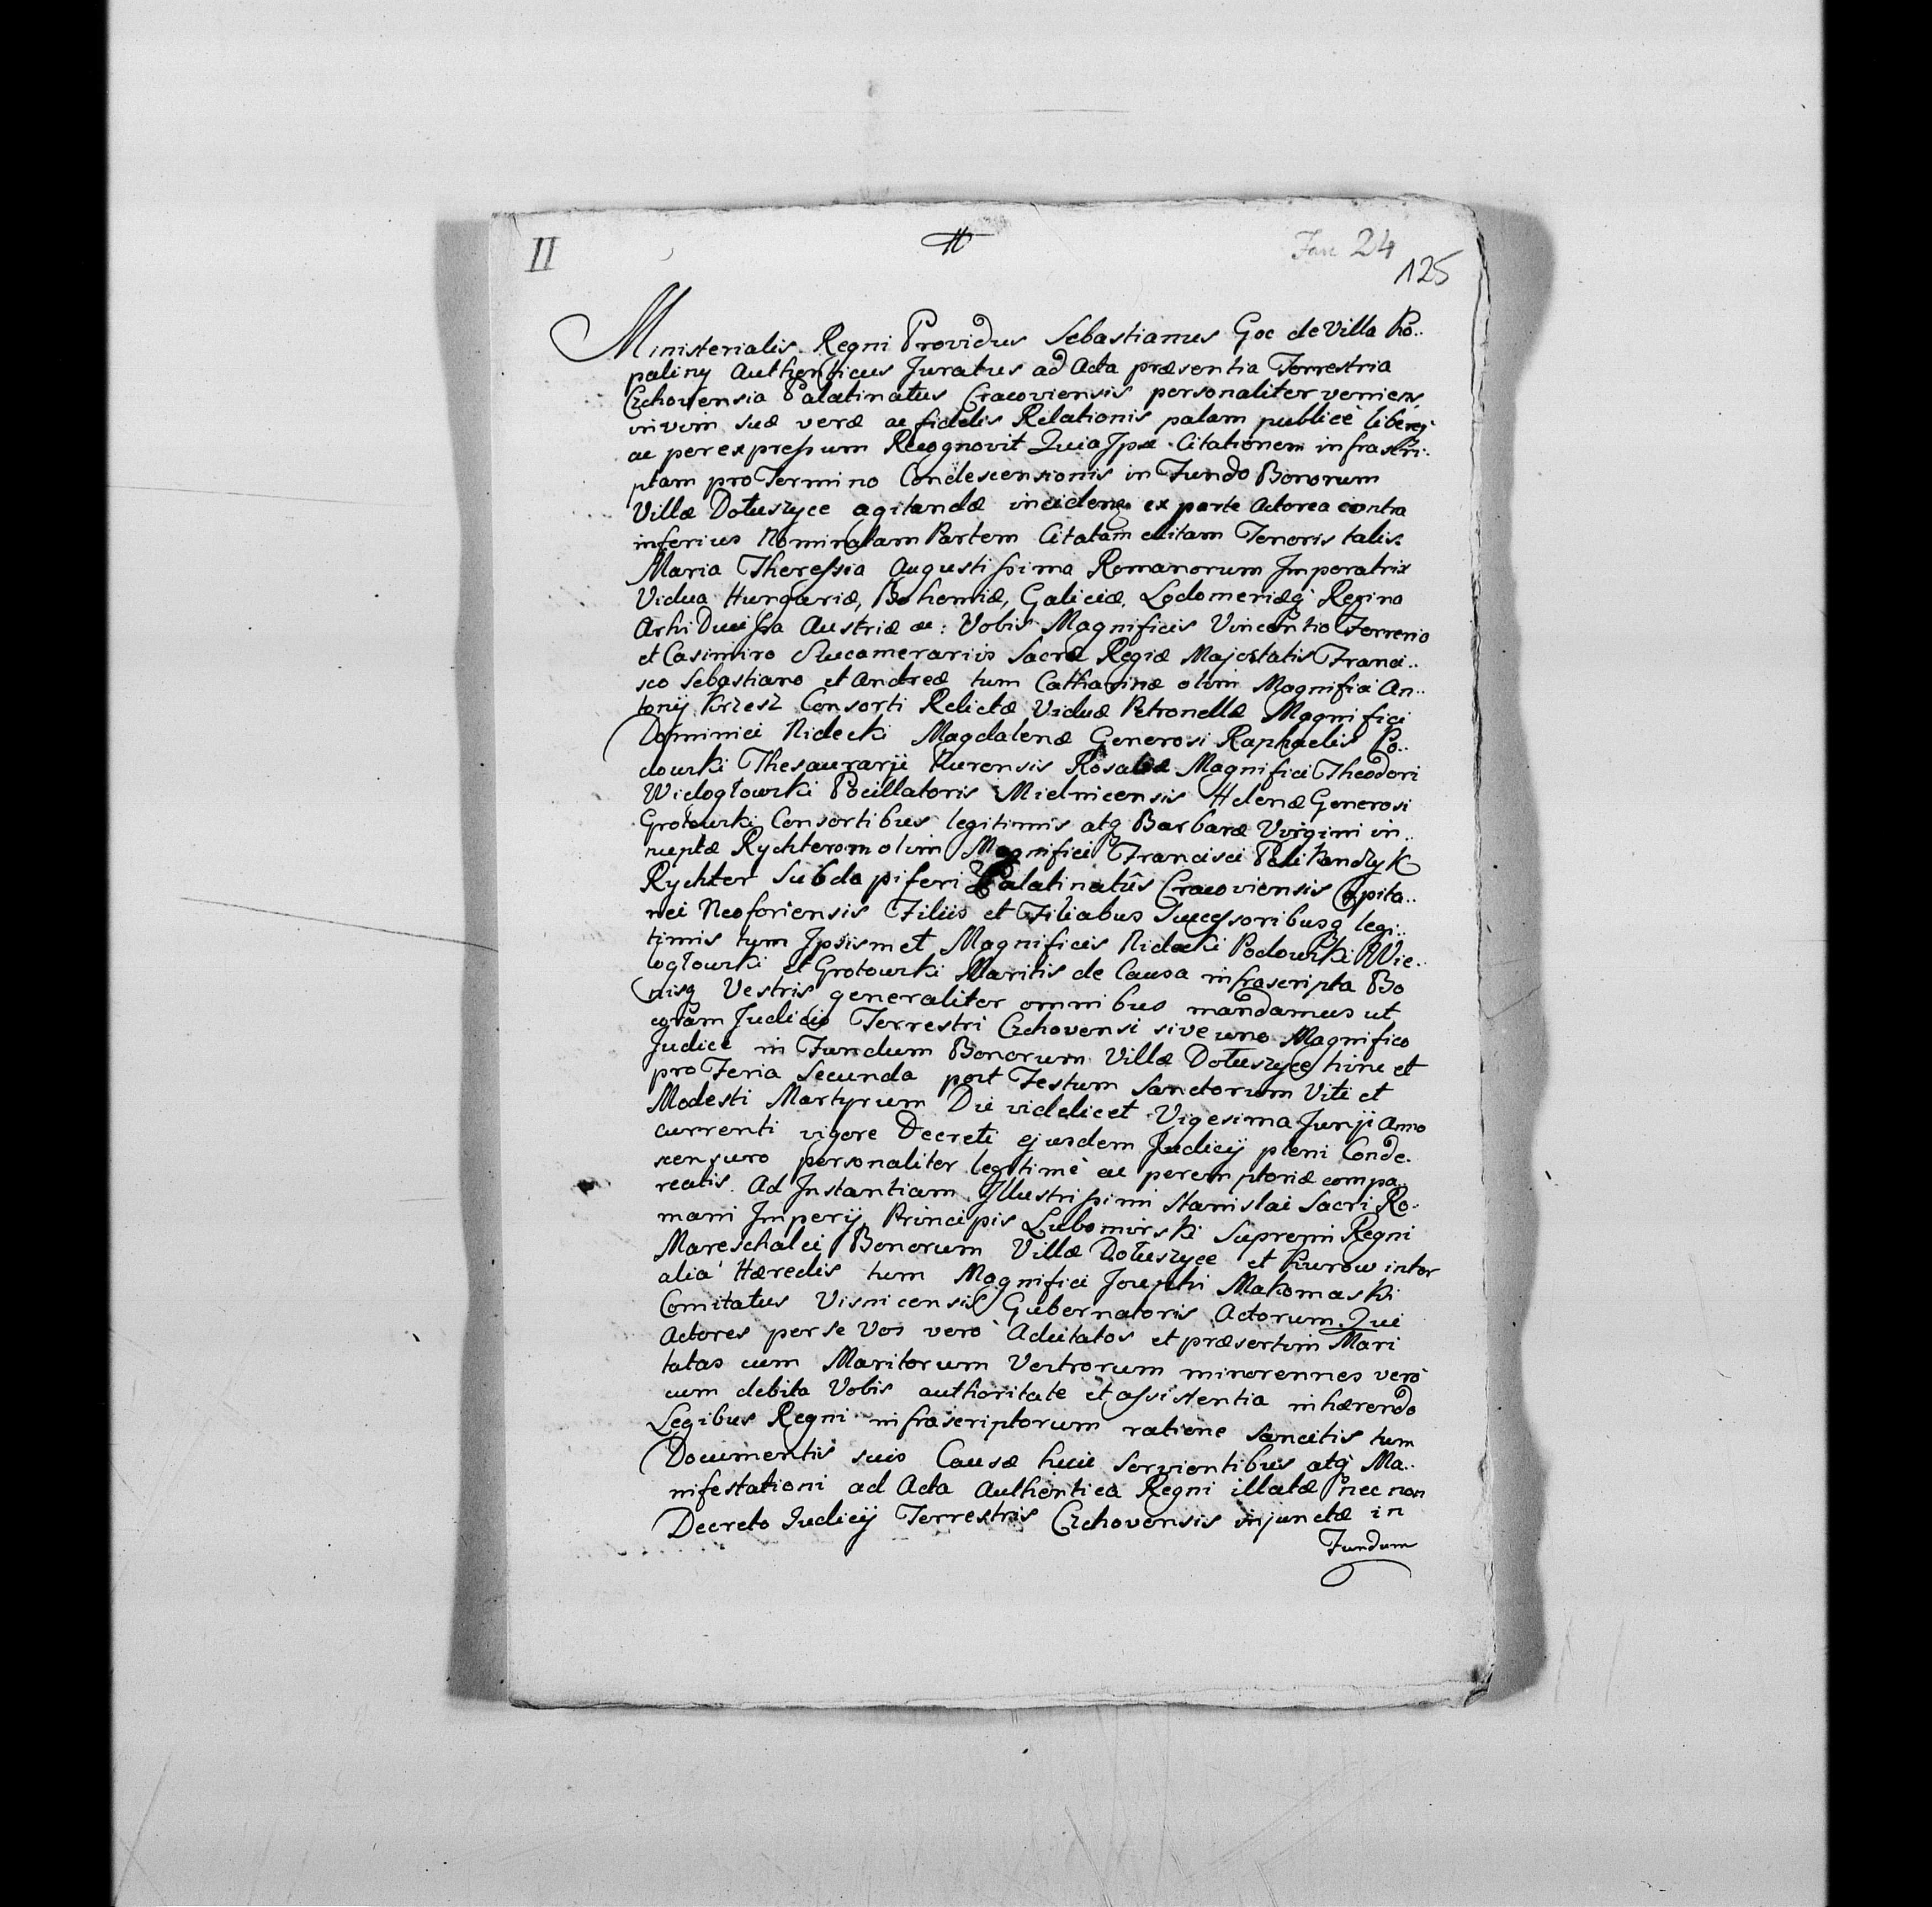 II
Fasc 24
125
Ministerialis Regni Providus Sebastianus Goc de Villa Ro..
paliny Authenticus Juratus ad Acta præsentia Terrestria
Czchoviensia Palatinatus Cracoviensis personaliter veniens
in vim suæ veræ ac fidelis Relationis palam publicè libereq́
ac per expressum Recognovit Quia Ipse Citationem infrascri..
ptam pro Termino Condescensionis in Fundo Bonorum
Villæ Dołuszyce agitandæ ex parte Actorea contra
inferius Nominatam Partem Citatam editam Tenoris talis.
Maria Theressia Augustissima Romanorum Imperatrix
Vidua Hungariæ, Bohemiæ, Galiciæ, Lodomeriæq́ Regina
Archi Ducissa Austriæ &c: Vobis Magnificis Vincentio Ferrerio
et Casimiro Succamerariis Sacræ Regiæ Majestatis Franci..
sco Sebastiano et Andreæ tum Catharinæ olim Magnifici An..
tonij Krzesz Consorti Relictæ Viduæ Petronellæ Magnifici
Dominici Nidecki Magdalenæ Generosi Raphaelis Po..
dowski Thesaurarij Rosaliæ Magnifici Theodori
Wielogłowski Pocillatoris Mielnicensis Helenæ Generosi
Grotowski Consortibus legitimis atq́ Barbaræ Virgini in..
nuptæ Rychterom olim Magnifici Francisci Pelikanczyk
Rychter Subdapiferi Palatinatûs Cracoviensis Capita..
nei Neoforiensis Filiis et Filiabus Successoribusq́ legi..
timis tum Ipsismet Magnificis Nidecki Podowski Wie..
logłowski et Grotowski Maritis de Causa infrascripta Bo
nisq́ Vestris generaliter omnibus mandamus ut
coram Judicio Terrestri Czchovensi sive uno Magnifico
Judice in Fundum Bonorum Villæ Dołuszyce hinc et
pro Feria Secunda post Festum Sanctorum Viti et
Modesti Martyrum Die videlicet Vigesima Junij Anno
currenti vigore Decreti ejusdem Judicij pleni Conde.
scensuro personaliter legitimè ac peremptoriæ compa..
reatis. Ad Instantiam Illustrissimi Stanislai Sacri Ro.
mani Imperij Principis Lubomirski Supremi Regni
Mareschalci Bonorum Villæ Dołuszyce et Kurow inter
alia Hæredis tum Magnifici Josephi Makomaski
Comitatus Visnicensis Gubernatoris Actorum. Qui
Actores per se Vos verò Adcitatos et præsertim Mari
tatas cum Maritorum Vestrorum minorennes verò
cum debita Vobis authoritate et assistentia inhærendo
Legibus Regni infrascriptorum ratione Sancitis tum
Documentis suis Causæ huic Servientibus atq́ Ma..
nifestationi ad Acta Authentica Regni illatæ nec non
Decreto Judicij Terrestris Czchovensis injunctæ in
Fundum